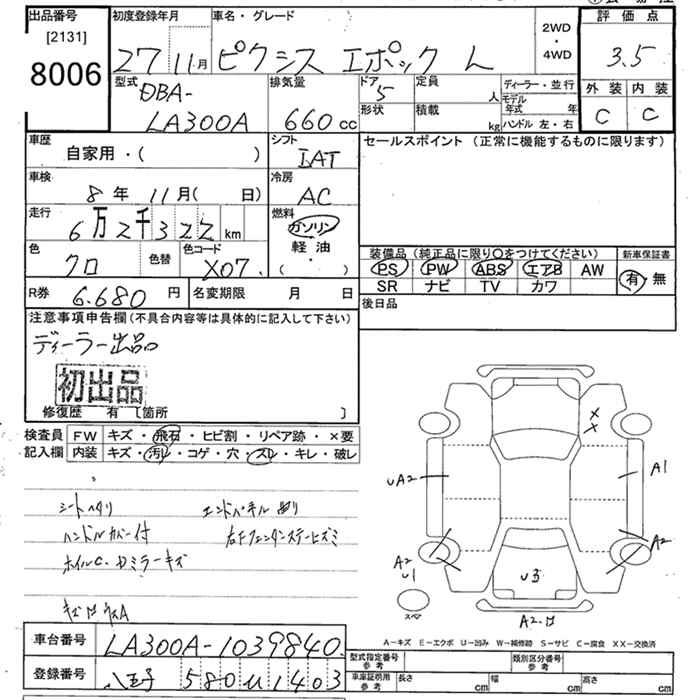 出品番号
[2131]
8006
初度登録年月
27 11月
車名・グレード
ピクシス エポック L
2WD
・
4WD
評価点
3.5
外装 内装
C C
型式
DBA-
LA300A
排気量
660 cc
ドア
5
形状
定員
人
積載
kg
ディーラー・並行
モデル年式 年
ハンドル 左・右
車歴
自家用・( )
シフト
IAT
セールスポイント (正常に機能するものに限ります)
車検
8年 11月( 日)
冷房
AC
走行
6万2千322 km
燃料
ガソリン
軽油
・
( )
色
クロ
色替
色コード
X07.
装備品(純正品に限り○をつけてください)
PS PW ABS エアB AW
SR ナビ TV カワ
新車保証書
有・無
R券 6.680 円
名変期限 月 日
後日品
注意事項申告欄(不具合内容等は具体的に記入して下さい)
ディーラー出品
初出品
修復歴 有 [箇所 ]
検査員
記入欄
FW キズ・飛石・ヒビ割・リペア跡・×要
内装 キズ・汚レ・コゲ・穴・スレ・キレ・破レ
シートヘタリ
ハンドルカバー付
ホイルC.ドミラーキズ
エンドパネル凹リ
右Fフェンダステーヒズミ
UA2
A1
A2
A2
U1
U3
A2.凹
スペア
A-キズ E-エクボ U-凹み W-補修跡 S-サビ C-腐食 XX-交換済
車台番号 LA300A-1039840.
登録番号 八王子 580 い1403
型式指定番号
参考
類別区分番号
参考
車庫証明用
参考
長さ cm 幅 cm 高さ cm